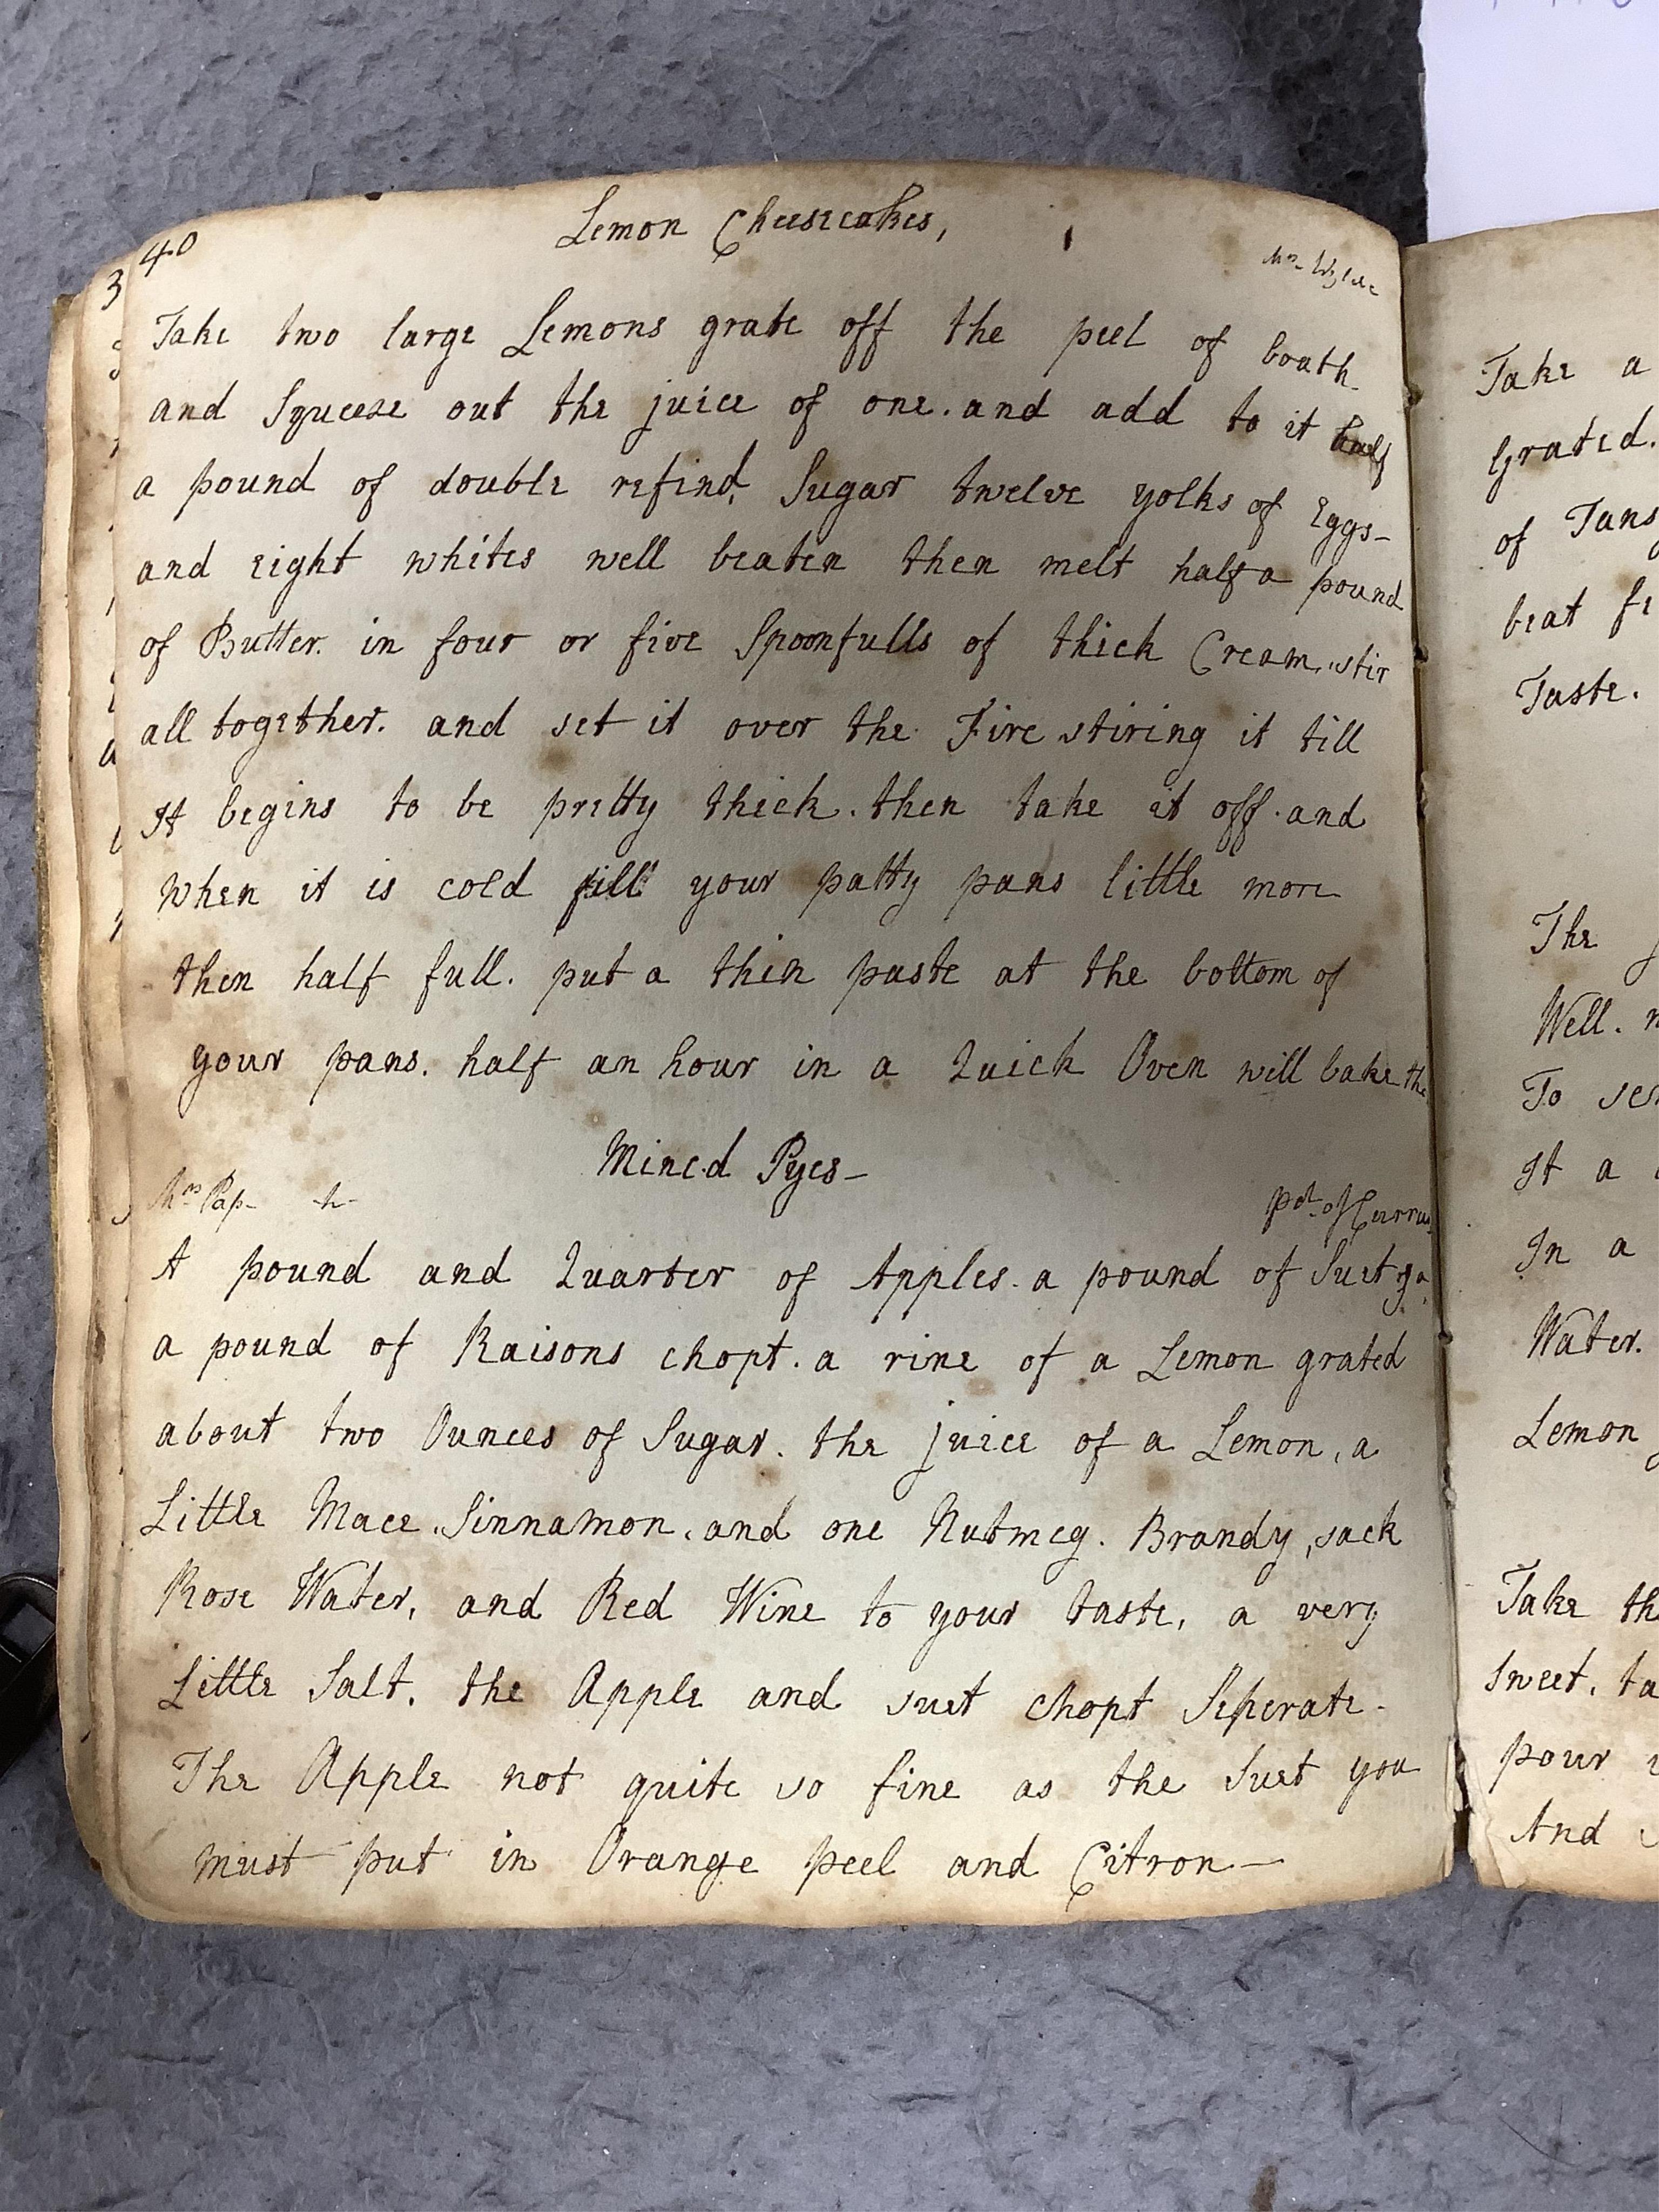 40
Lemon Cheesecakes,
Mrs
Take two large Lemons grate off the peel of boath
and Squeese out the juice of one. and add to it half
a pound of double refind. Sugar twelve yolks of Eggs-
and eight whites well beaten then melt half a pound
of Butter. in four or five Spoonfulls of thick Cream. stir
all together. and set it over the Fire stiring it till
It begins to be pretty thick. then take it off. and
when it is cold fill your patty pans little more
then half full. put a thin paste at the bottom of
your pans. half an hour in a Quick Oven will bake the
Minc.d Pyes-
Mrs Pap-
pd. of Curran
A pound and Quarter of Apples. a pound of Suet
a pound of Raisons chopt. a rine of a Lemon grated
about two Ounces of Sugar. the juice of a Lemon, a
Little Mace. Sinnamon. and one Nutmeg. Brandy, sack
Rose Water, and Red Wine to your taste, a very
Little Salt. the Apple and suet Chopt Seperate-
The Apple not quite so fine as the Suet you
must put in Orange peel and Citron-
Take a
Grated.
of Tans
beat fi
Taste.
The
Well.
To se
It a
In a
Water.
Lemon
Take th
Sweet. ta
pour
And